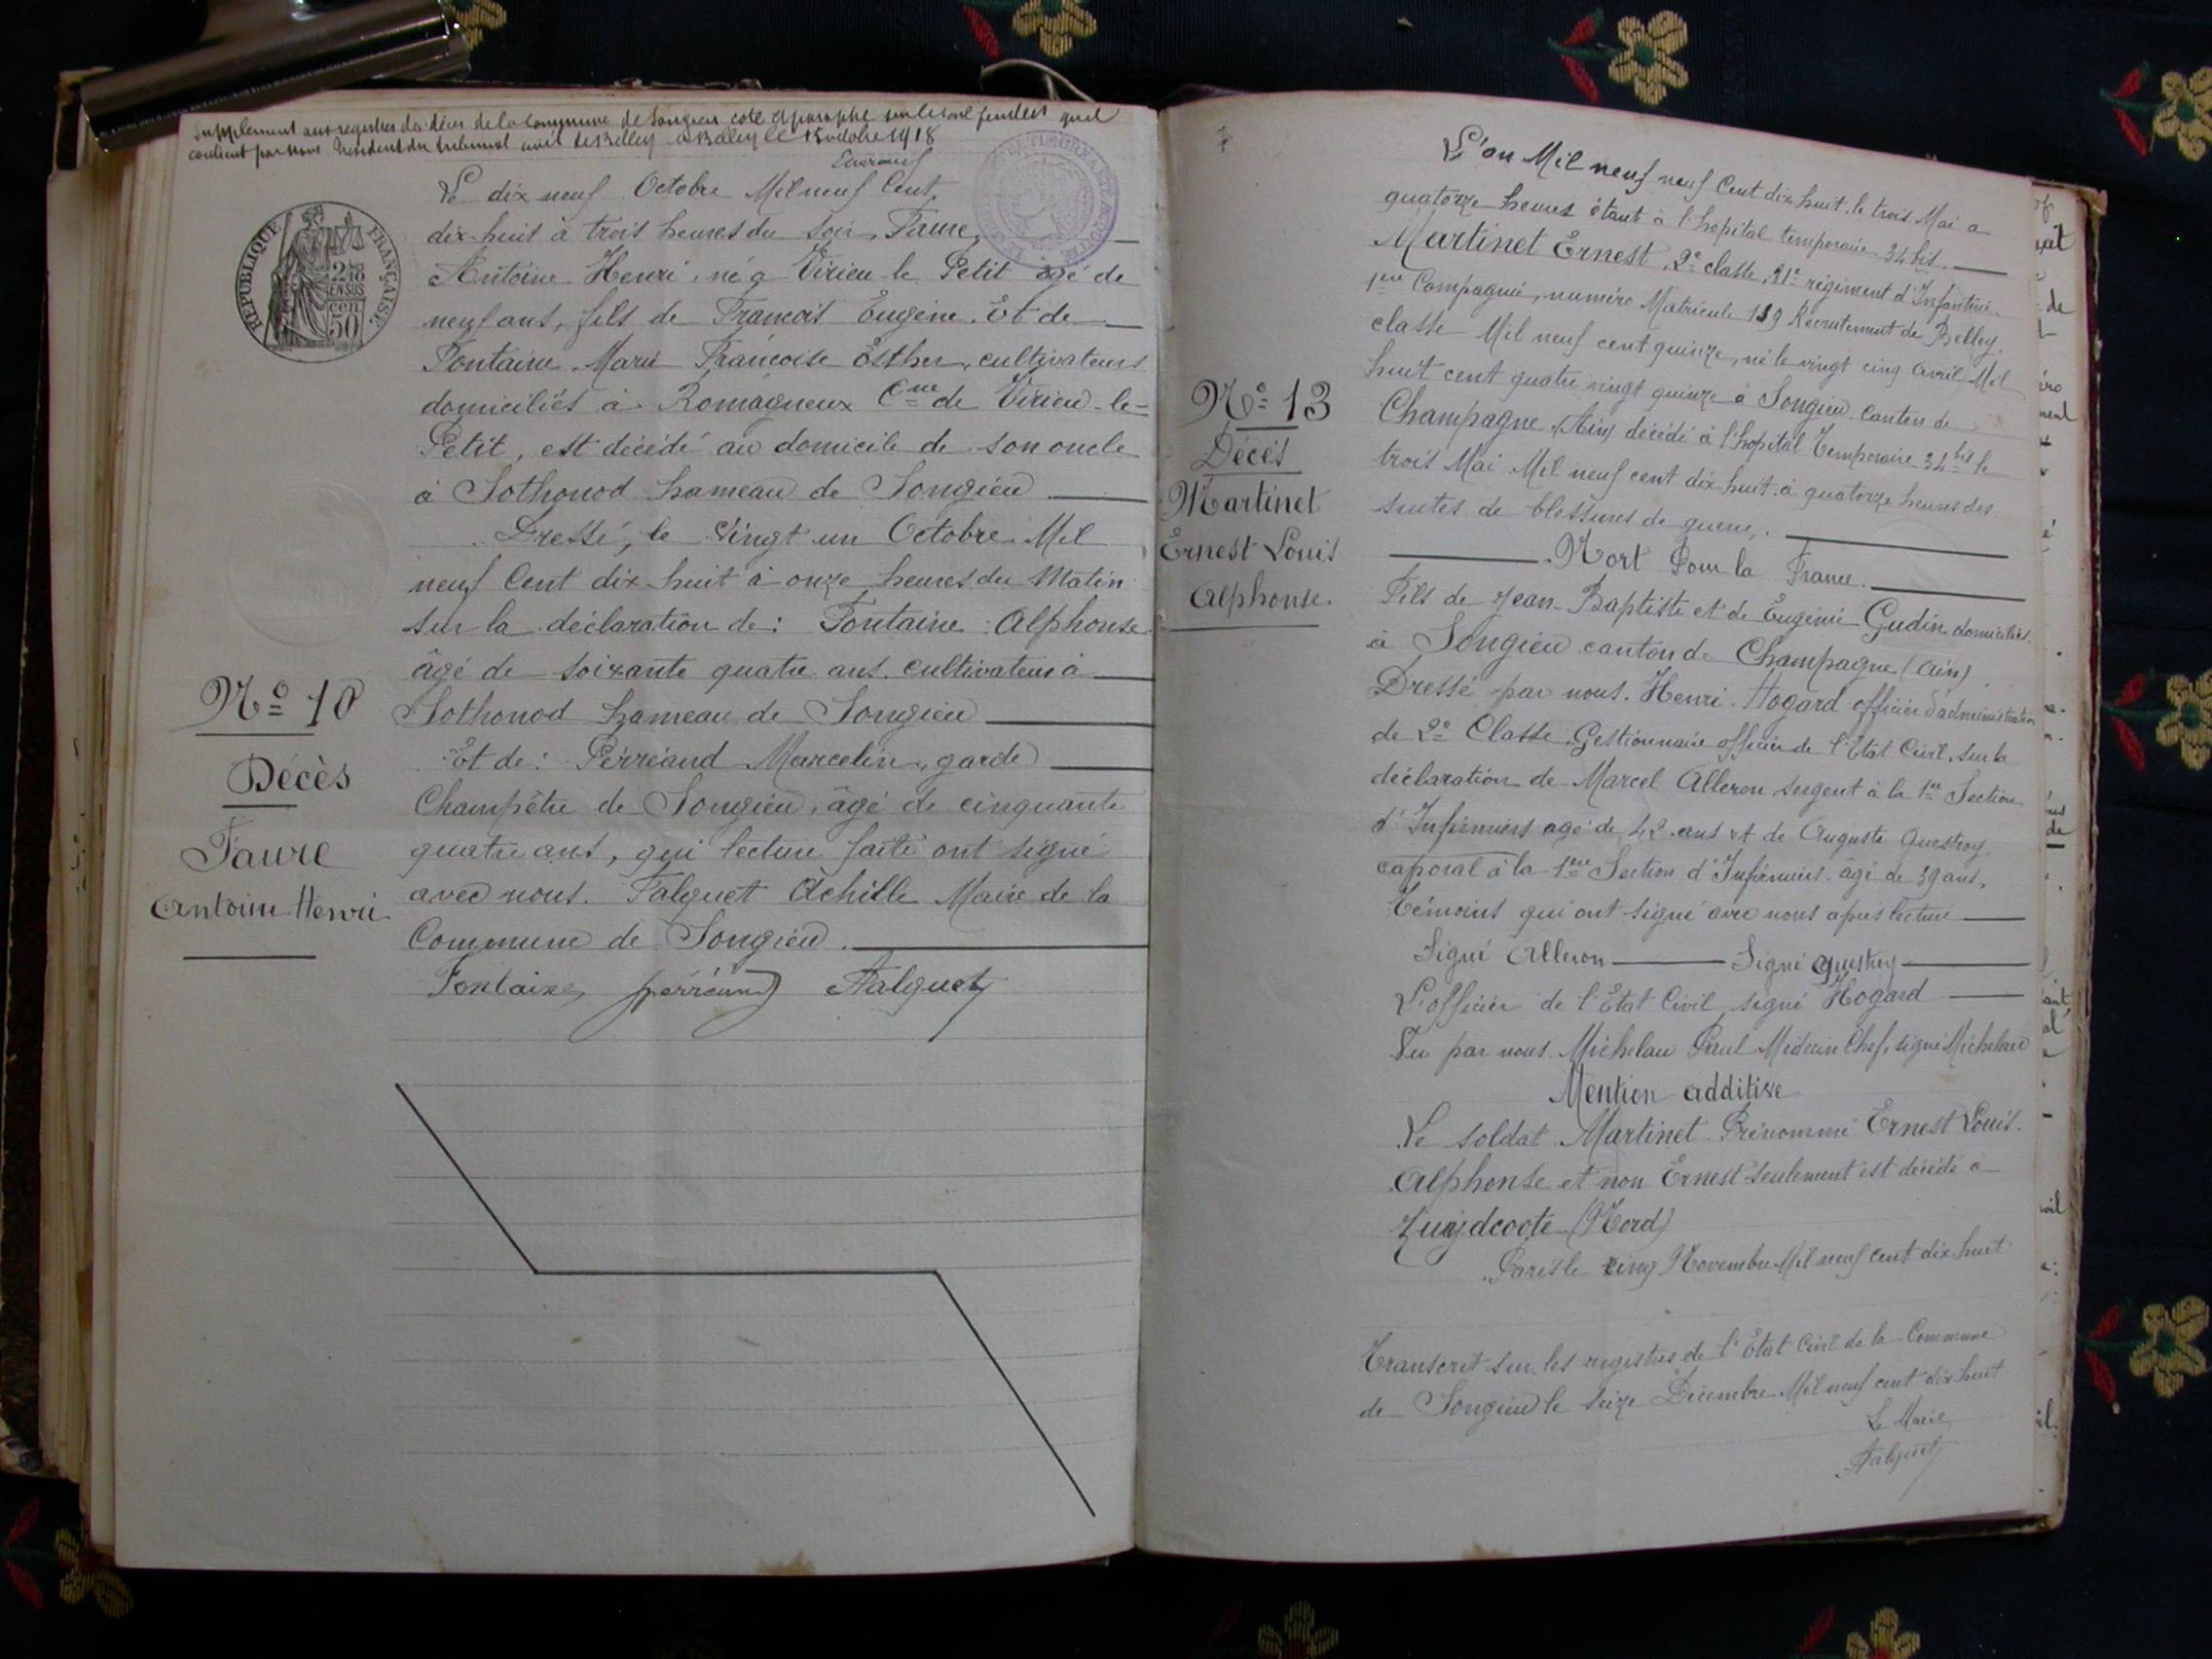 Supplement aux registres des décès de la commune de Songieu coté et paraphé sur le seul feuillet qu'il
contient par nous Président du tribunal civil de Belley à Belley le 15 octobre 1918
Le dix neuf Octobre Mil neuf Cent
dix-huit à trois heures du soir, Faure,
Antoine Henri, né à Virieu le Petit âgé de
neuf ans, fils de Francois Eugène. Et de
Fontaine Marie Françoise Esther, cultivateurs
domiciliés à Romagneux Cne de Virieu-le-
Petit, est décédé au domicile de son oncle
à Sothonod hameau de Songieu
Dressé, le Vingt un Octobre Mil
neuf Cent dix huit à onze heures du Matin
sur la déclaration de : Fontaine Alphonse
âgé de soixante quatre ans cultivateur à
Sothonod hameau de Songieu
Et de : Pérréand Marcelin, garde
Champêtre de Songieu, âgé de cinquante
quatre ans, qui lecture faite ont signé
avec nous. Falquet Achille Maire de la
Commune de Songieu.
Fontaine perréand AFalquet
RÉPUBLIQUE FRANÇAISE
cen
50
No 10
Décès
Faure
Antoine Henri
L'an Mil neuf neuf Cent dix huit, le trois Mai a
quatorze heures étant à l'hopital temporaire 34 bis
Martinet Ernest, 2e classe, 21e régiment d'Infanterie
1ere Compagnie, numéro Matricule 139 Recrutement de Belley.
classe Mil neuf cent quinze, né le vingt cinq Avril Mil
huit cent quatre vingt quinze à Songieu canton de
Champagne (Ain) décédé à l'hopital Temporaire 34 bis le
trois Mai Mil neuf cent dix-huit à quatorze heures des
suites de blessures de guerre,
Mort Pour la France.
Fils de Jean-Baptiste et de Eugénie Gudin domiciliés
à Songieu canton de Champagne (Ain)
Dressé par nous. Henri Hogard officier d'administration
de 2e Classe Gestionnaire officier de l'Etat Civil, sur la
déclaration de Marcel Alleron sergent à la 1re Section
d'Infirmiers agé de 42 ans et de Auguste Questroy,
caporal à la 1ere Section d'Infirmiers âgé de 39 ans,
témoins qui ont signé avec nous après lecture
Signé Alleron Signé Questroy
L'officier de l'Etat Civil signé Hogard
Vu par nous Michelau Paul Médecin Chef, signé Michelau
Mention additive
Le soldat Martinet Prénommé Ernest Louis
Alphonse et non Ernest seulement est décédé à
Zuydcoote (Nord)
Paris le cinq Novembre Mil neuf cent dix huit
Transcrit sur les registres de l'Etat Civil de la Commune
de Songieu le seize Décembre Mil neuf cent dix huit
Le Maire
AFalquet
No 13
Décès
Martinet
Ernest Louis
Alphonse.